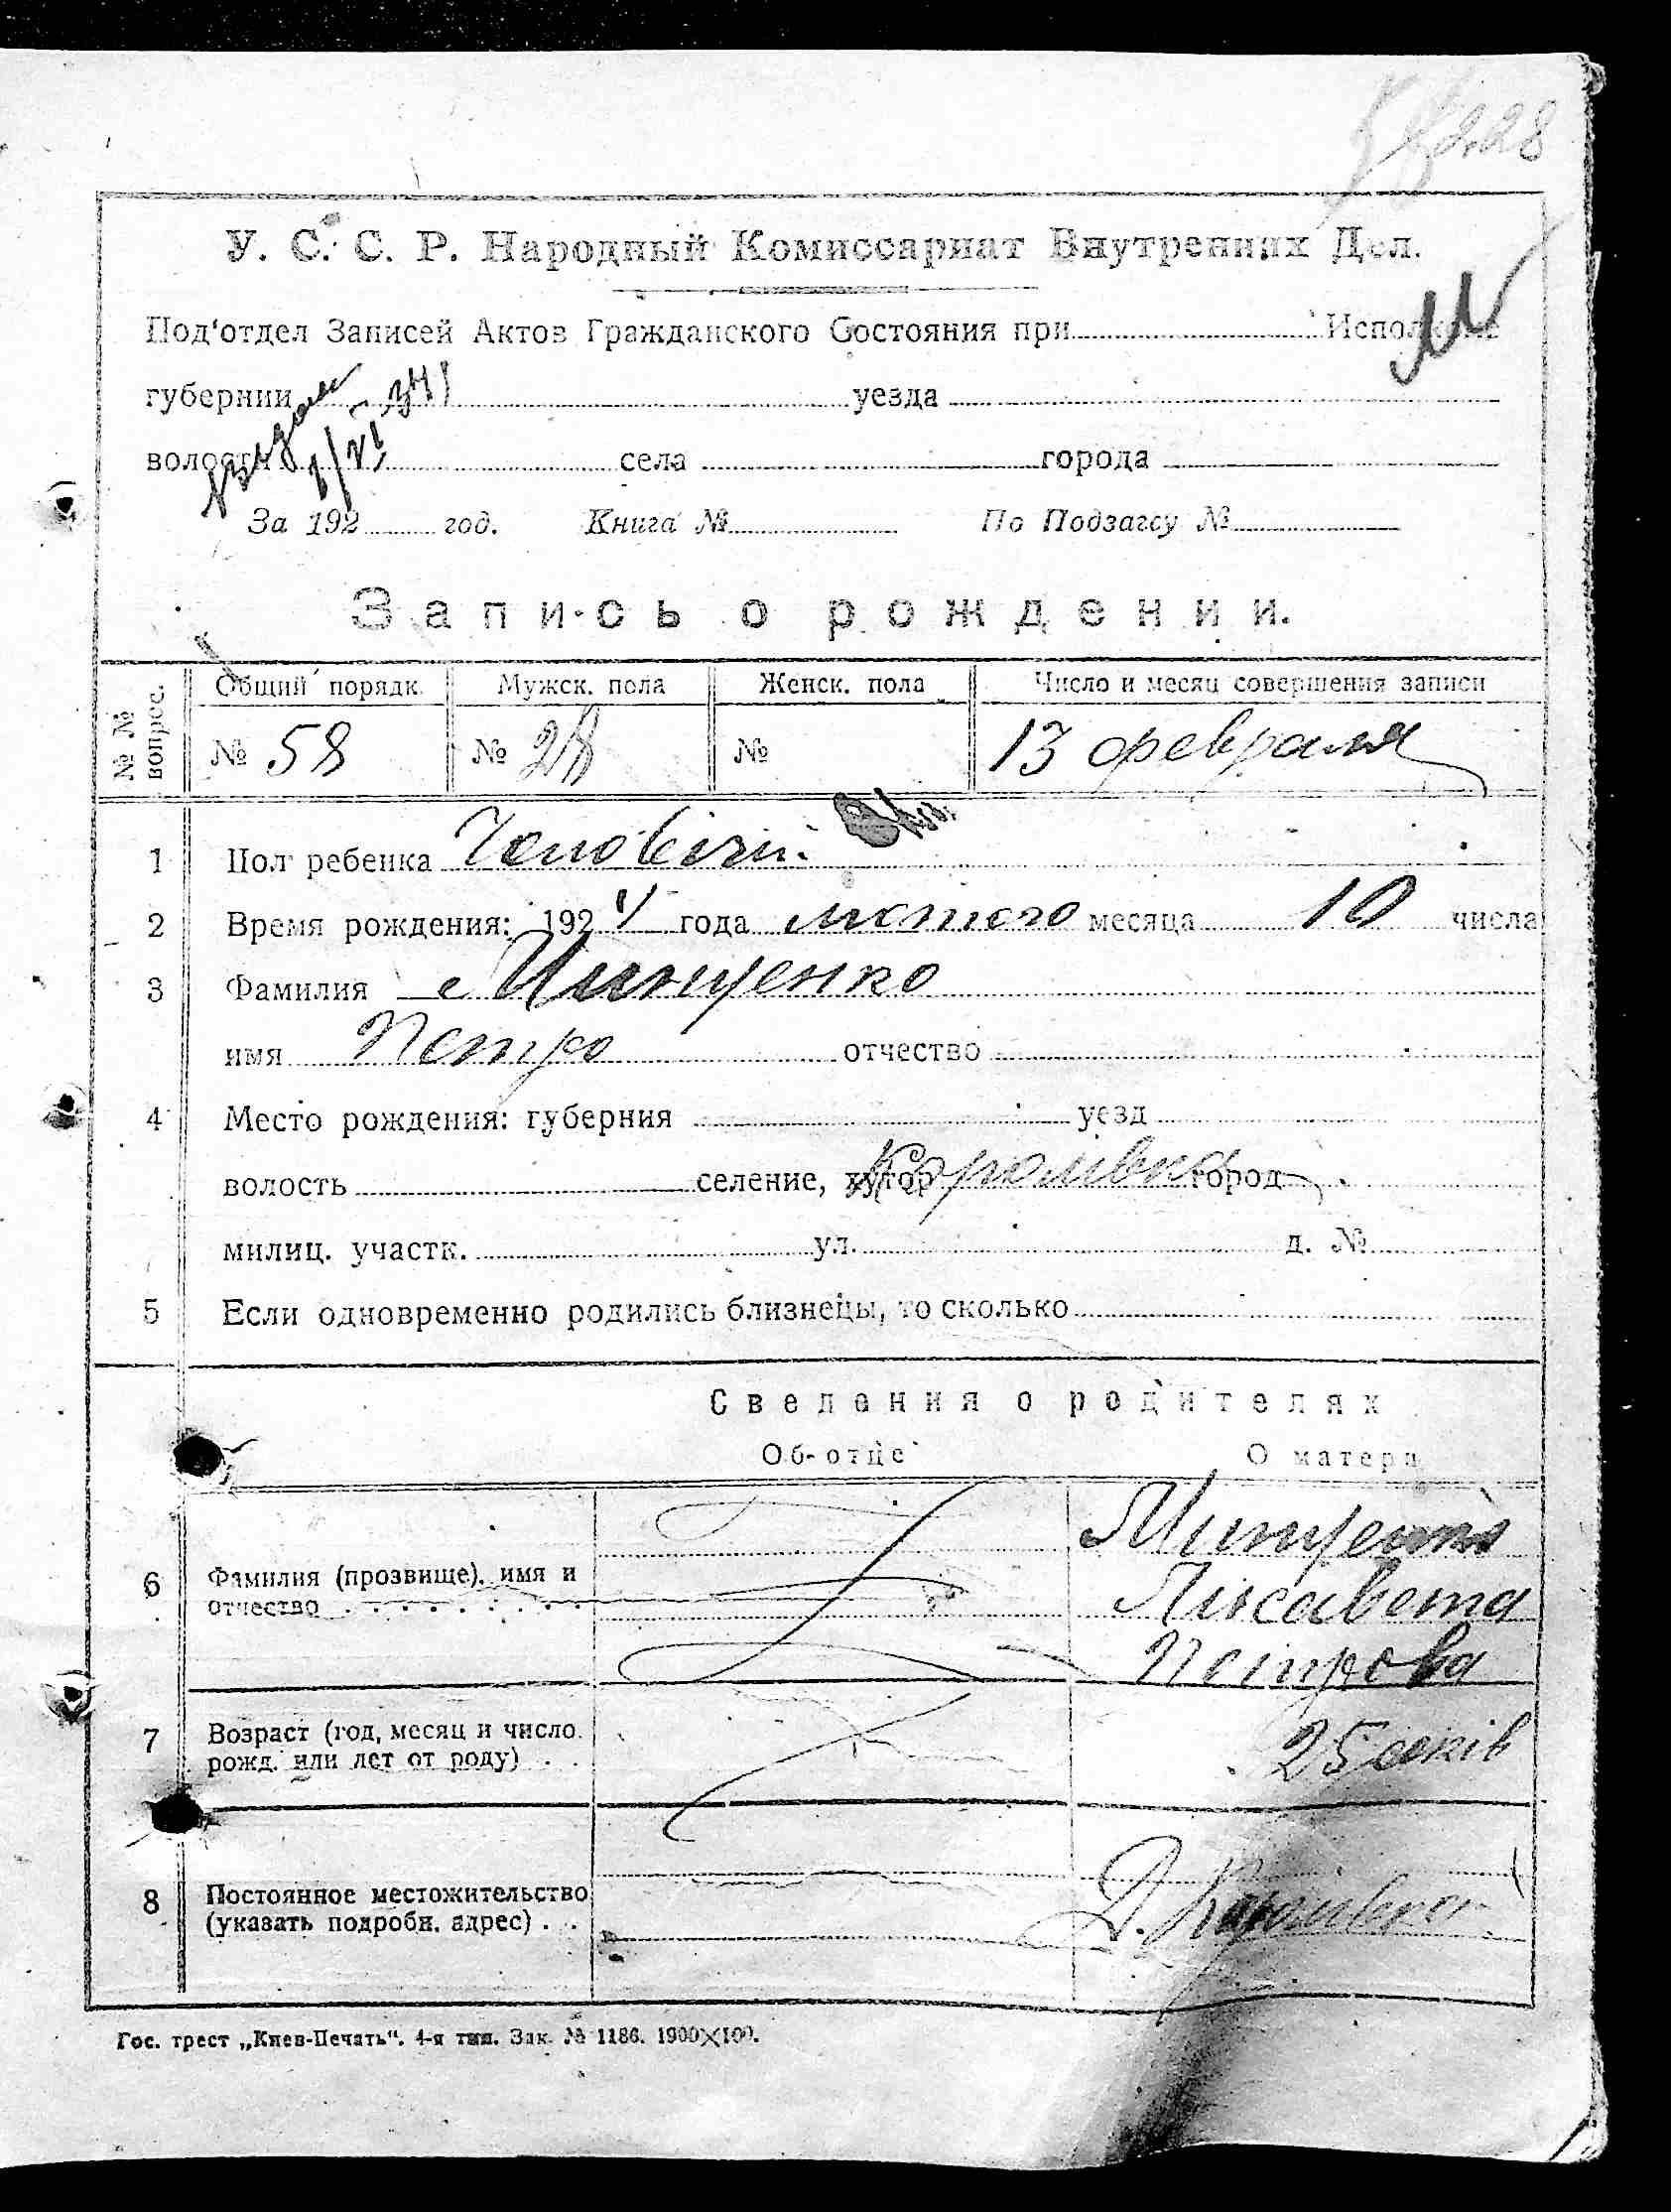 228
У. С. С. Р. Народный Комиссариат Внутренних Дел.
Под'отдел Записей Актов Гражданского Состояния при Исполкоме
губернии уезда
волости села города
За 192 год. Книга № По Подзагсу №
Запись о рождении.
№ № вопрос. Общий порядк. Мужск. пола Женск. пола Число и месяц совершения записи
№ 58 № 28 № 13 февраля
1 Пол ребенка Чоловічий
2 Время рождения: 1924 года лютого месяца 10 числа
3 Фамилия Минченко
имя Петро отчество
4 Место рождения: губерния уезд
волость селение, хутор Каролівка город
милиц. участк. ул. д. №
5 Если одновременно родились близнецы, то сколько
Сведения о родителях
Об отце О матери
Минченко
6 Фамилия (прозвище), имя и
отчество Лисавета
Петрова
7 Возраст (год, месяц и число
рожд. или лет от роду) 25 років
8 Постоянное местожительство
(указать подробн. адрес) Д. Каролівка
Гос. трест „Киев-Печать“. 4-я тип. Зак. № 1186. 1900×100.